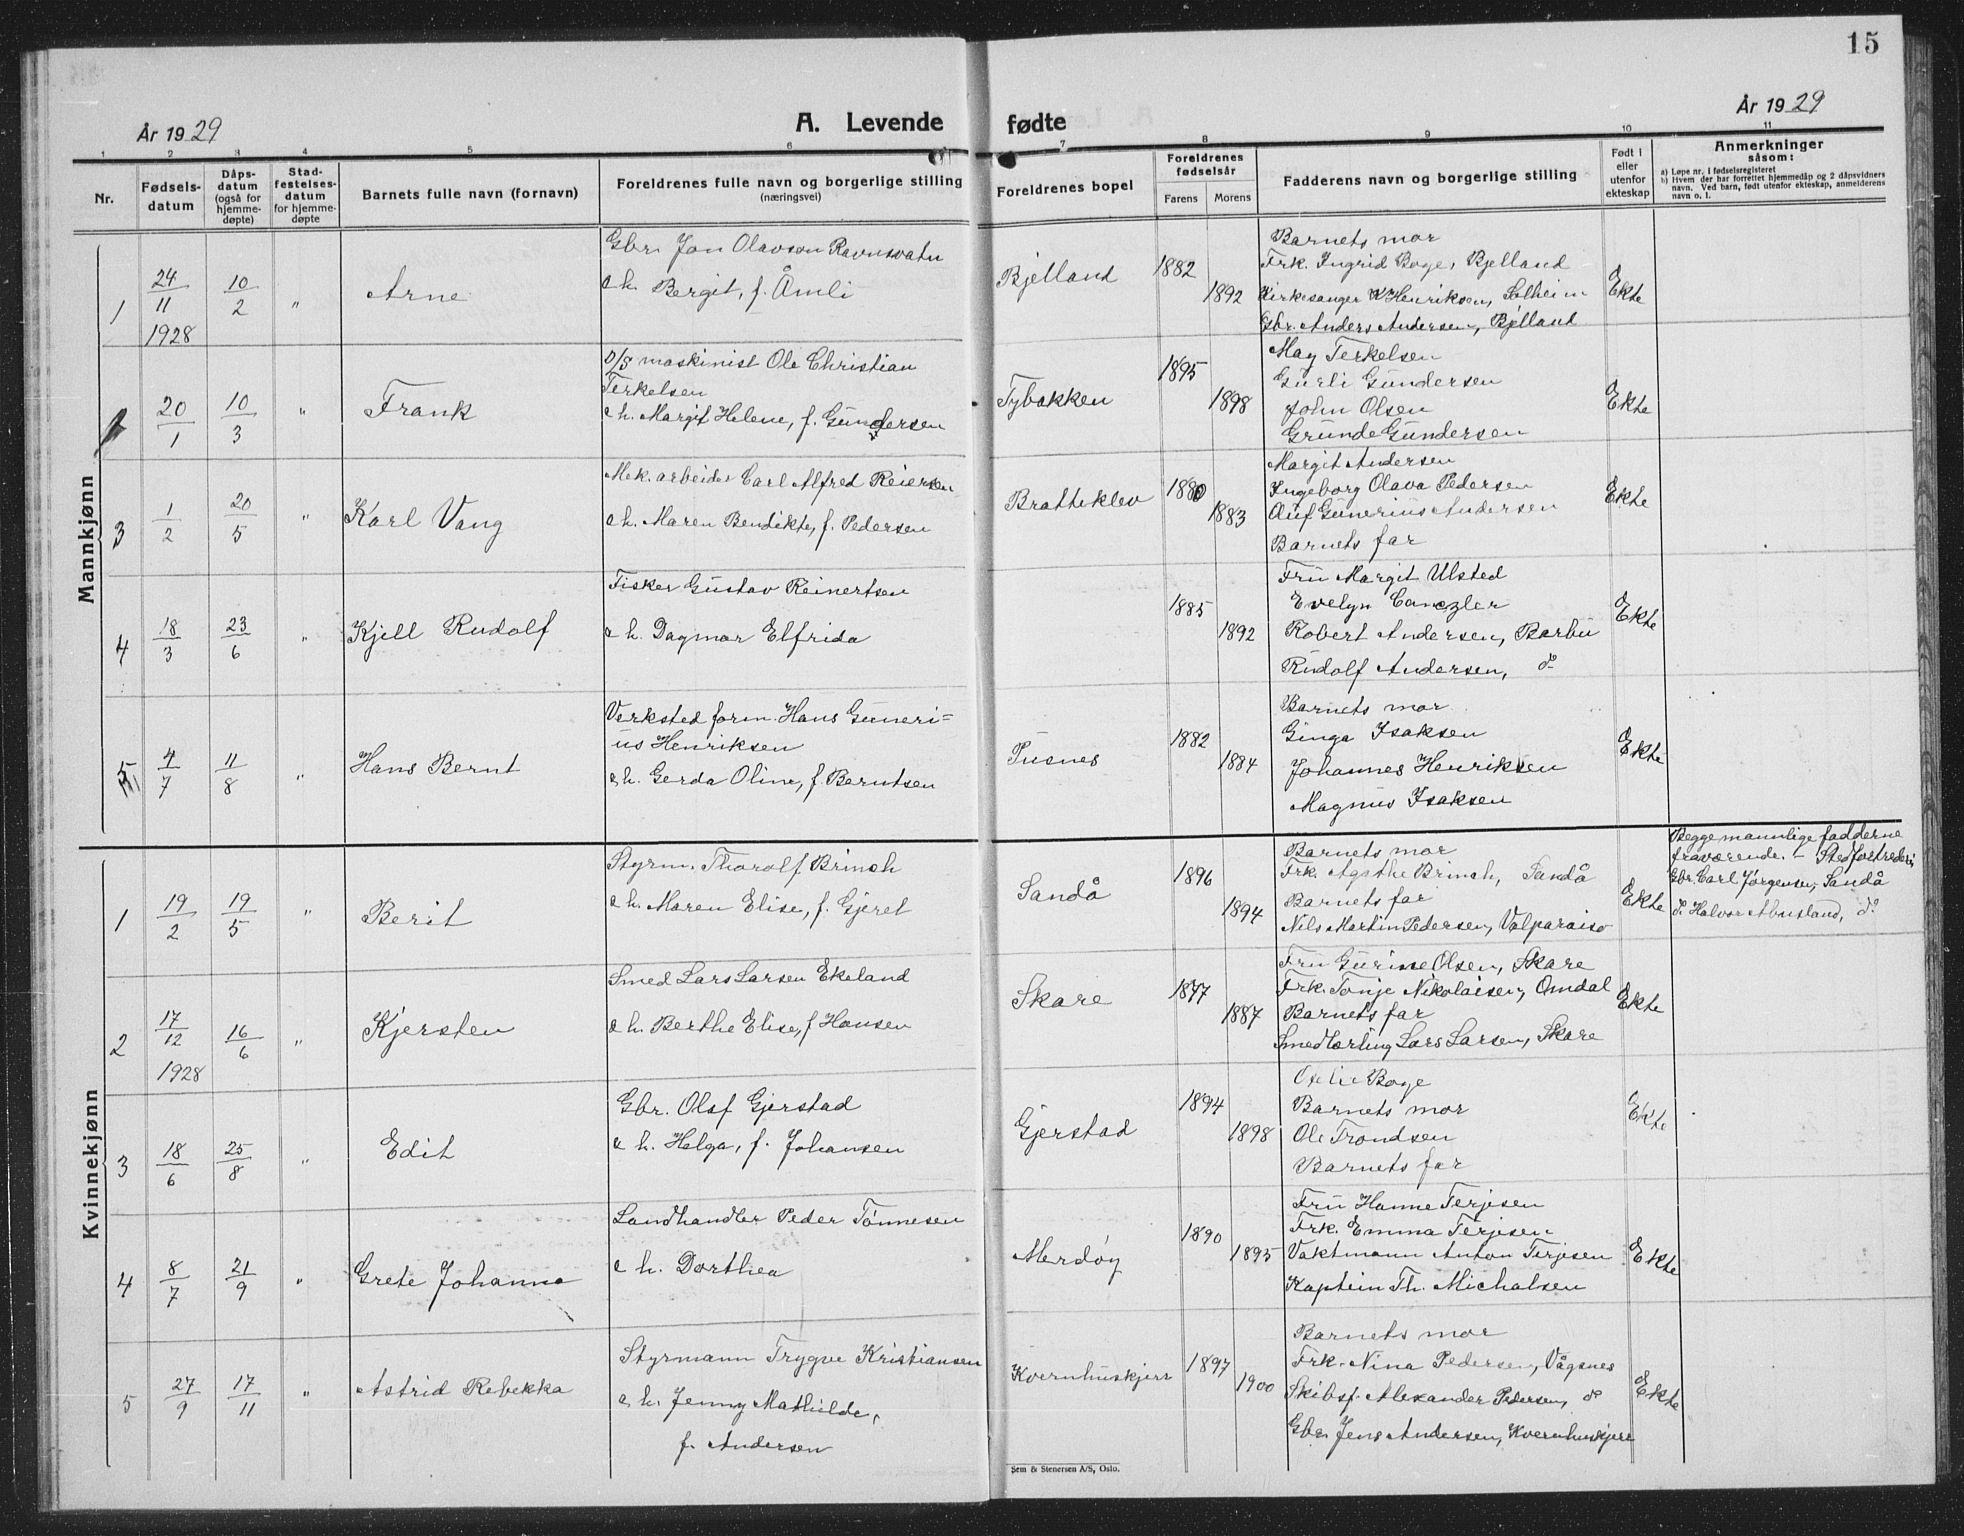 15
År 1929
A. Levende fødte
År 1929
1 2 3 4 5 6 7 8 9 10 11
Nr.
Fødsels-
datum
Dåps-
datum
(også for
hjemme-
døpte)
Stad-
festelses-
datum
for hjemme-
døpte
Barnets fulle navn (fornavn)
Foreldrenes fulle navn og borgerlige stilling
(næringsvei)
Foreldrenes bopel
Foreldrenes
fødselsår
Farens Morens
Fadderens navn og borgerlige stilling
Født i
eller
utenfor
ekteskap
Anmerkninger
såsom:
a) Løpe nr. i fødselsregisteret
b) Hvem der har forrettet hjemmedåp og 2 dåpsvidners
navn. Ved barn, født utenfor ekteskap, anmelderens
navn o. l.
Mannkjønn
1
24/11
1928
10/2
"
Arne
Gbr. Jon Olavson Ravnsvatn
e h. Bergit, f. Åmli
Bjelland
1882
1892
Barnets mor
Frk. Ingrid Boge, Bjelland
Kirkesanger K Henriksen, Solheim
Gbr. Anders Andersen, Bjelland
Ekte
20/1
10/3
"
Frank
D/S maskinist Ole Christian
Terkelsen
e h. Margit Helene, f. Gundersen
Tybakken
1895
1898
May Terkelsen
Gurli Gundersen
John Olsen
Grunde Gundersen
Ekte
3
1/2
20/5
"
Karl Vang
Mek. arbeider Carl Alfred Reiersen
e h. Maren Bendikte, f. Pedersen
Bratteklev
1880
1883
Margit Andersen
Ingeborg Olava Pedersen
Oluf Gunerius Andersen
Barnets far
Ekte
4
18/3
23/6
"
Kjell Rudolf
Fisker Gustav Reinertsen
e h. Dagmar Elfrida
1885
1892
Fru Margit Ulsted
Evelyn Canezler
Robert Andersen, Barbu
Rudolf Andersen, do
Ekte
5
4/7
11/8
"
Hans Bernt
Verksted form. Hans Guneri=
us Henriksen
e h. Gerda Oline, f. Berntsen
Pusnes
1882
1884
Barnets mor
Ginga Isaksen
Johannes Henriksen
Magnus Isaksen
Ekte
Kvinnekjønn
1
19/2
19/5
"
Berit
Styrm. Thorolf Brinch
e h. Maren Elise, f. Gjeret
Sandå
1896
1894
Barnets mor
Frk. Agathe Brinch, Sandå
Barnets far
Nils Martin Pedersen, Valparaiso
Ekte
Begge mannlige fadderne
fraværende. - Stedfortredere
Gbr. Carl Jørgensen, Sandå
Halvor Abusland, do
2
17/12
1928
16/6
"
Kjersten
Smed Lars Larsen Ekeland
e h. Berthe Elise, f Hansen
Skare
1877
1887
Fru Gurine Olsen, Skare
Frk. Tonje Nikolaisen, Omdal
Barnets far
Smedlærling Lars Larsen, Skare
Ekte
3
18/6
25/8
"
Edit
Gbr. Olaf Gjerstad
e h. Helga, f. Johansen
Gjerstad
1894
1898
Boge
Barnets mor
Ole Trondsen
Barnets far
Ekte
4
8/7
21/9
"
Grete Johanna
Landhandler Peder Tønnesen
e h. Dorthea
Merdøy
1890
1895
Fru Hanne Terjesen
Frk. Emma Terjesen
Vaktmann Anton Terjesen
Kaptein Th. Michalsen
Ekte
5
27/9
17/11
"
Astrid Rebekka
Styrmann Trygve Kristiansen
e h. Jenny Mathilde,
f. Andersen
Kvernhuskjerr
1897
1900
Barnets mor
Frk. Nina Pedersen, Vågsnes
Skibsf. Alexander Pedersen, do
Gbr. Jens Andersen, Kvernhuskjerr
Ekte
Sem & Stenersen A/S, Oslo.